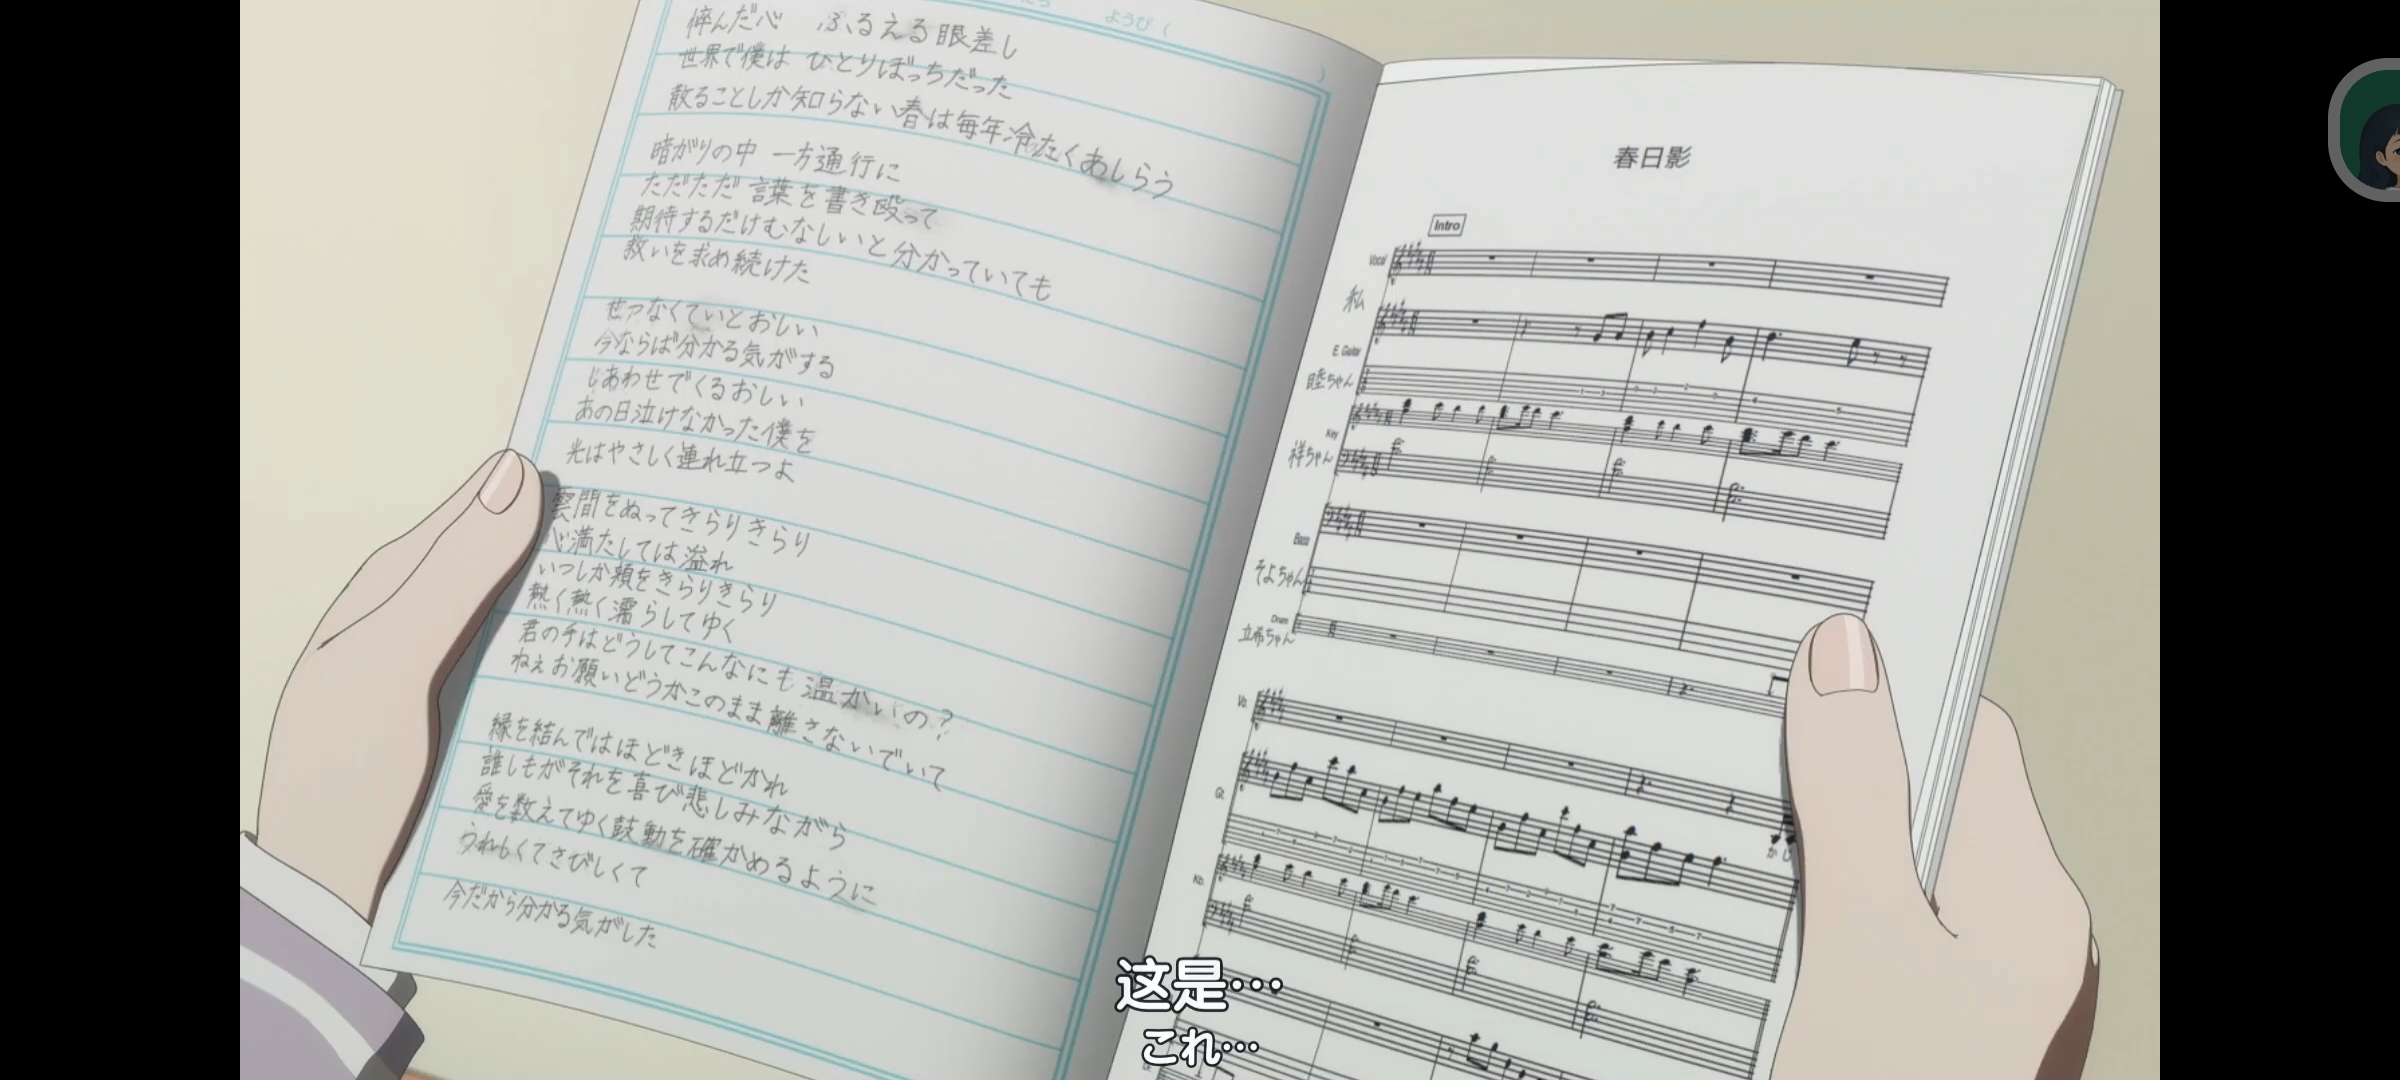 ようび (
)
悴んだ心 ふるえる眼差し
世界で僕は ひとりぼっちだった
散ることしか知らない春は毎年冷たくあしらう
暗がりの中 一方通行に
ただただ 言葉を書き殴って
期待するだけむなしいと分かっていても
救いを求め続けた
せつなくていとおしい
今ならば分かる気がする
しあわせでくるおしい
あの日泣けなかった僕を
光はやさしく連れ立つよ
雲間をぬってきらりきらり
心満たしては溢れ
いつしか頬をきらりきらり
熱く熱く濡らしてゆく
君の手はどうしてこんなにも温かいの?
ねぇお願いどうかこのまま離さないでいて
縁を結んではほどきほどかれ
誰しもがそれを喜び悲しみながら
愛を数えてゆく鼓動を確かめるように
うれしくてさびしくて
今だから分かる気がした
春日影
Intro
Vocal
私
E. Guitar
睦ちゃん
Key
祥ちゃん
Bass
そよちゃん
Drum
立希ちゃん
Vo.
Gt.
か じ
Kb.
这是…
これ…